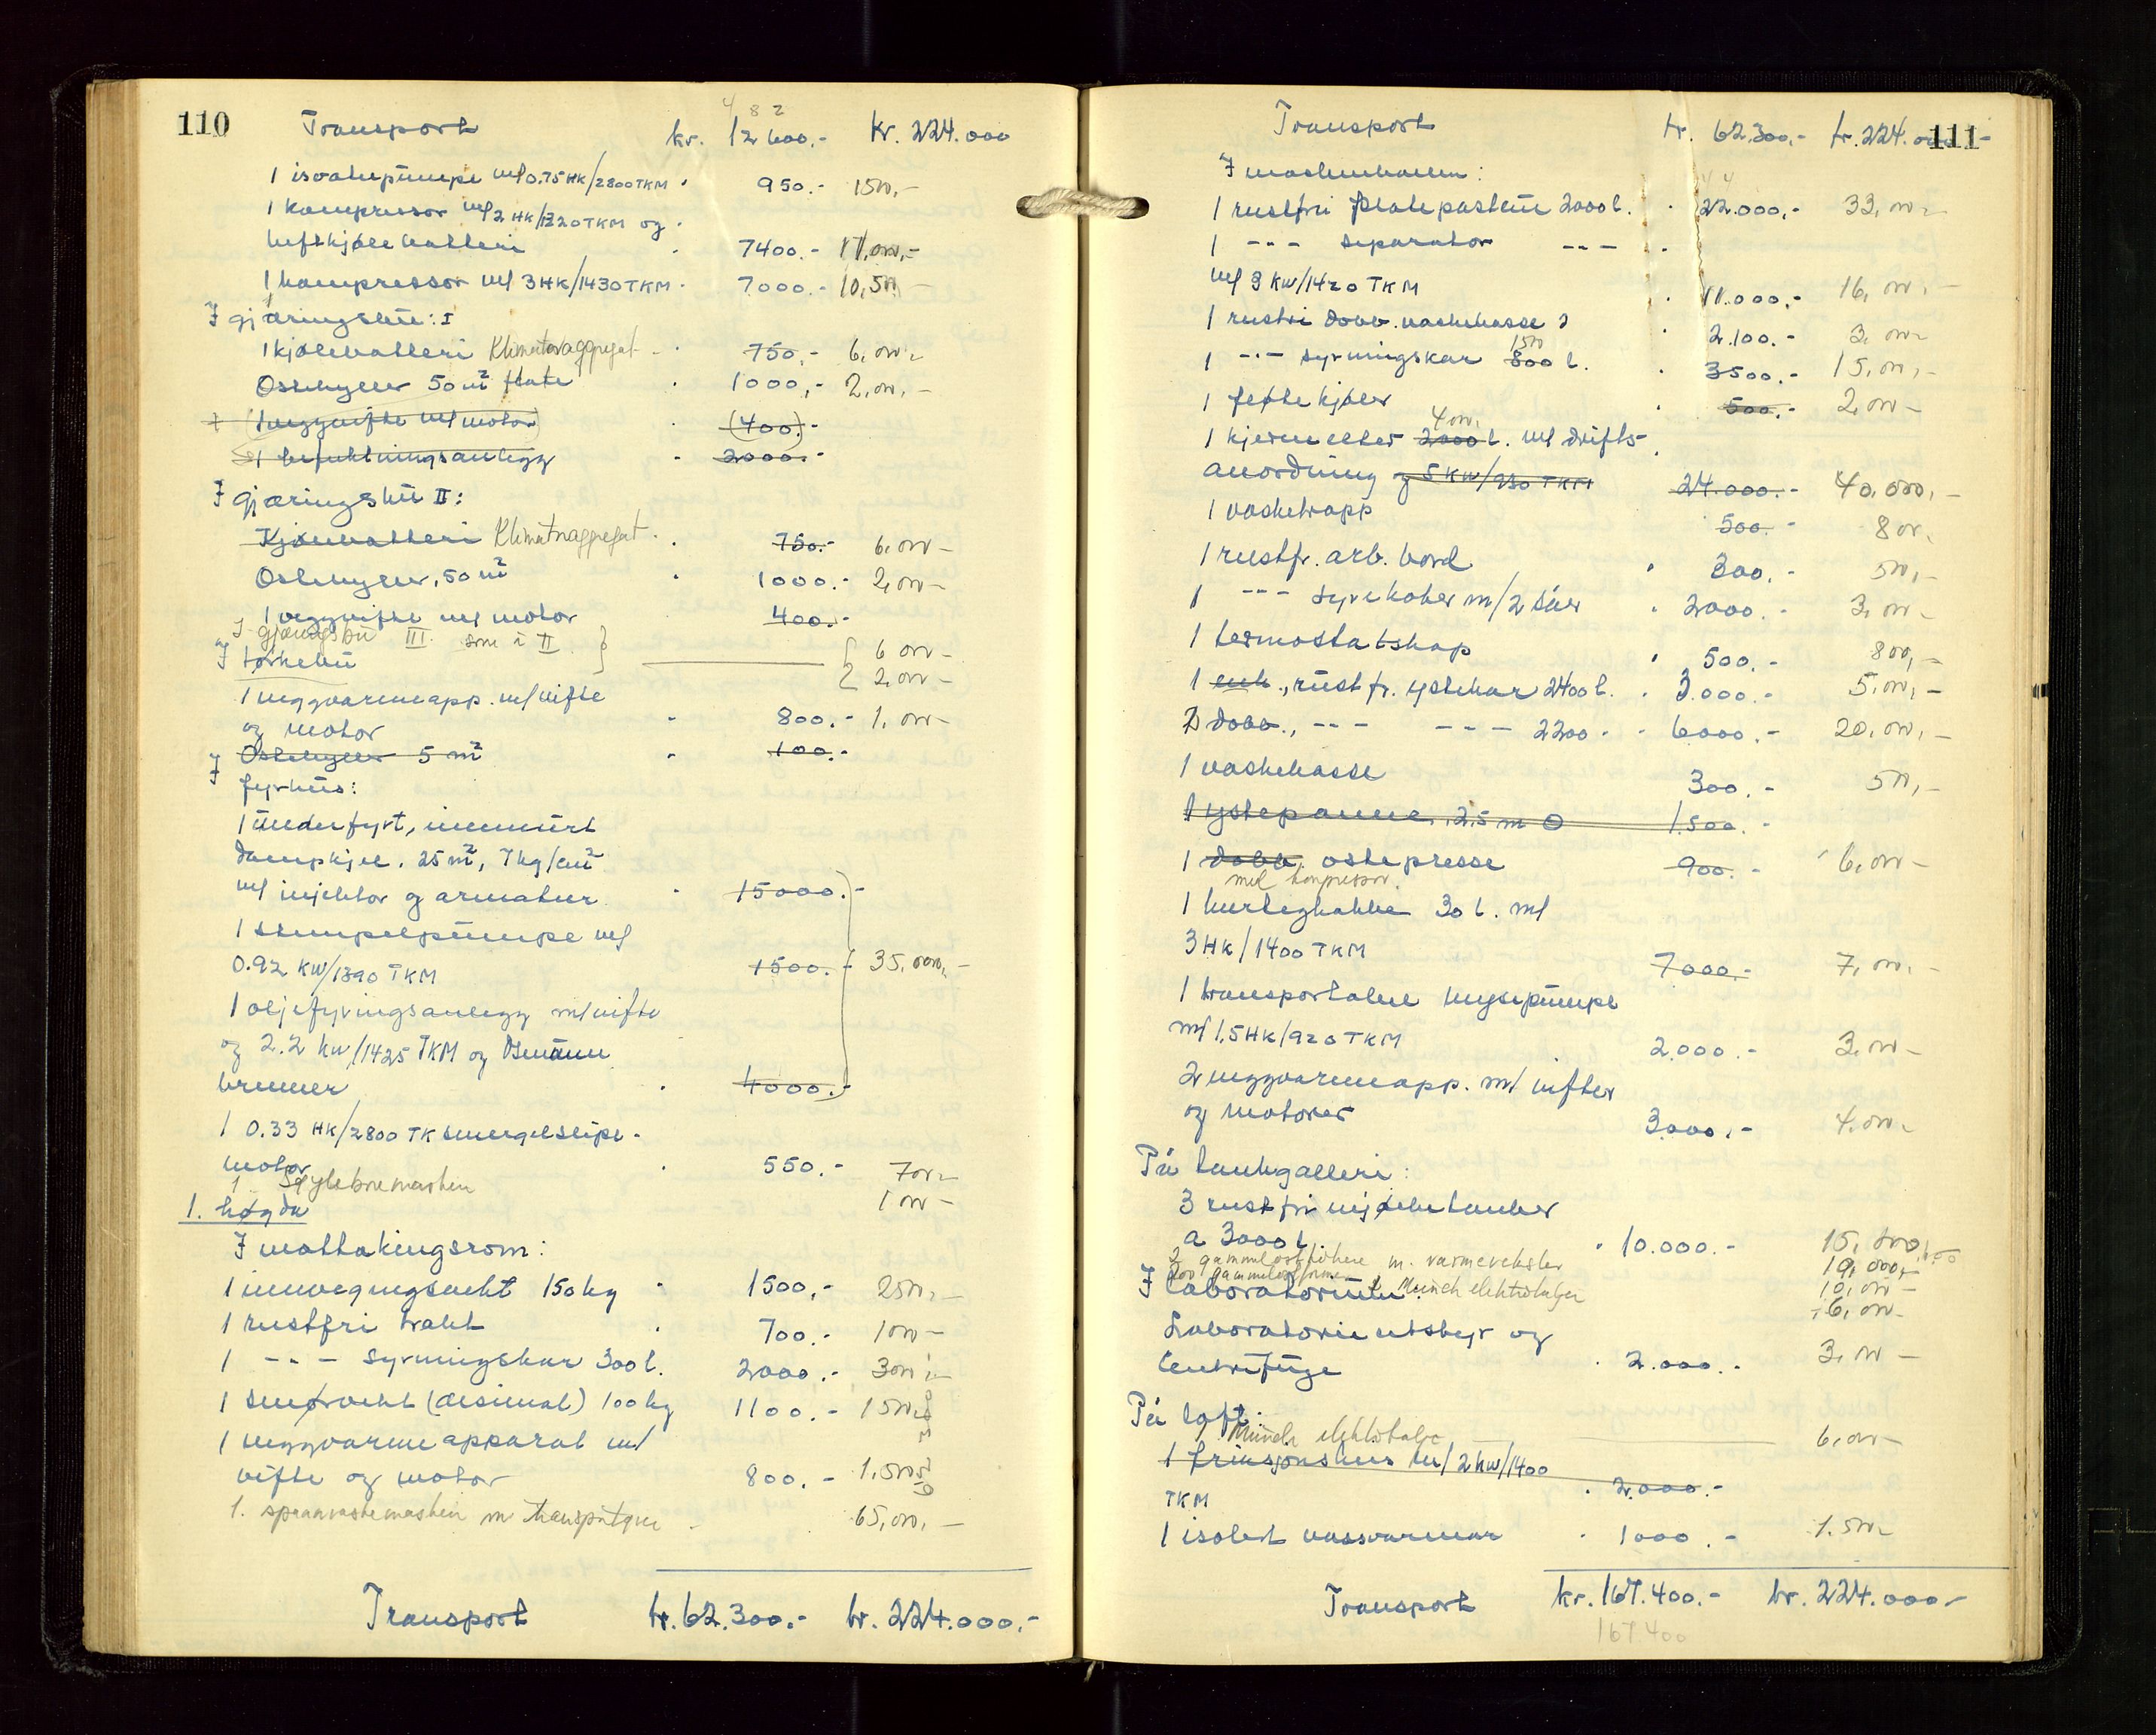 110
4 8 2
Transport kr. 12600.- kr. 224.000
1 isvatnpumpe m/0.75 HK/2800 TKM 950.- 1500,-
1 kompressor m/2 HK/1320 TKM og
luftkjølebatteri 7400.- 11,000,-
1 kompressor m/ 3 HK/1430 TKM 7000.- 10,500 -
I gjæringsbu: I
1 kjølebatteri Klimatoraggregat 750.- 6,000,-
Ostehyller 50 m² flate 1000,- 2,000,-
1 (veggvifte m/ motor) (400.)-
1 befuktningsanlegg 2000.-
I gjæringsbu II:
Kjølebatteri Klimatoraggregat 750.- 6,000 -
Ostehyller, 50 m² 1000.- 2,000 -
1 veggvifte m/ motor 400.-
I gjæringsbu III. som i II 6 000 -
I tørkebu 2,000 -
1 veggvarmeapp. m/ vifte
og motor 800.- 1,000 -
Ostehyller 5 m² 100.-
I fyrhus:
1 underfyrt, innmurt
dampkjel. 25 m², 7 kg/cm²
m/ injektor og armatur 15000.-
1 stempelpumpe m/
0.92 KW/1390 TKM 1500.- 35,000,-
1 oljefyringsanlegg m/ vifte
og 2.2 kw/1425 TKM og
brenner 4000.-
1 0.33 HK/2800 TK smergelslipe-
motor 550.- 700,-
1 Søyleboremaskin 1 000 -
1. høgda
I mottakingsrom:
1 innvegingsvekt 150 kg 1500,- 2500,-
1 rustfri trakt 700.- 1000 -
1 -- - syrningskar 300 l. 2000.- 3000,-
1 smørvekt (desimal) 100 kg 1100.- 1500,-
1 veggvarmeapparat m/
vifte og motor 800.- 1.500
1. spannvaskemaskin m transportør 65,000,-
Transport kr. 62.300.- kr. 224.000.-
111
Transport kr. 62.300,- kr. 224.000-
I maskinhallen:
1 rustfri platepastøur 2000 l. 22.000,- 33,000,-
1 --- separator ---
m/ 3 KW/1420 TKM 11.000.- 16,000,-
1 rustfri dobb. vaskekasse 2.100.- 3,000-
1500
1 --- syrningskar 800 l. 3500.- 15,000,-
1 fløtekjøler 500.- 2,000 -
4000
1 kjerneelter 2000 l. m/ drifts-
anordning og 5 KW/930 TKM 24.000.- 40,000,-
1 vasketrapp 500.- 800,
1 rustfr. arb. bord 300.- 500,-
1 --- syrekoker m/2 såer 2000.- 3,000 -
1 termostatskap 500.- 800,-
1 enk., rustfr. ystekar 2400 l. 3.000.- 5,000,-
2 dobb., --- --- 2200 - 6000.- 20,000,-
1 vaskekasse 300.- 500,-
1 ystepanne, 2,5 m 1.500.-
1 dobb. ostepresse 900.- 6,000 -
med kompressor.
1 hurtighakke 30 l. m/
3 HK/1400 TKM 7000.- 7,000,-
1 transportabel mysepumpe
m/ 1.5 HK/920 TKM 2.000.- 3,000 -
2 veggvarmeapp. m/ vifter
og motorer 3.000.- 4,000,-
På tankgalleri:
3 rustfri mjølketanker
a 3000 l. 10.000.- 15,000,-
2 gammelostkokere m. varmeveksler 19,000,-
200 gammelostformer 10,000 -
I laboratorium: 1 Munck elektrotalje 6,000-
Laboratorieutstyr og
sentrifuge 2.000.- 3,000 -
På loft:
1 Munck elektrotalje 6,000 -
1 friksjonsheis m/ 2 kw/1400
TKM 2.000.-
1 isolert vassvarmar 1000.- 1.500-
Transport kr. 167.400.- kr. 224.000-
167.400